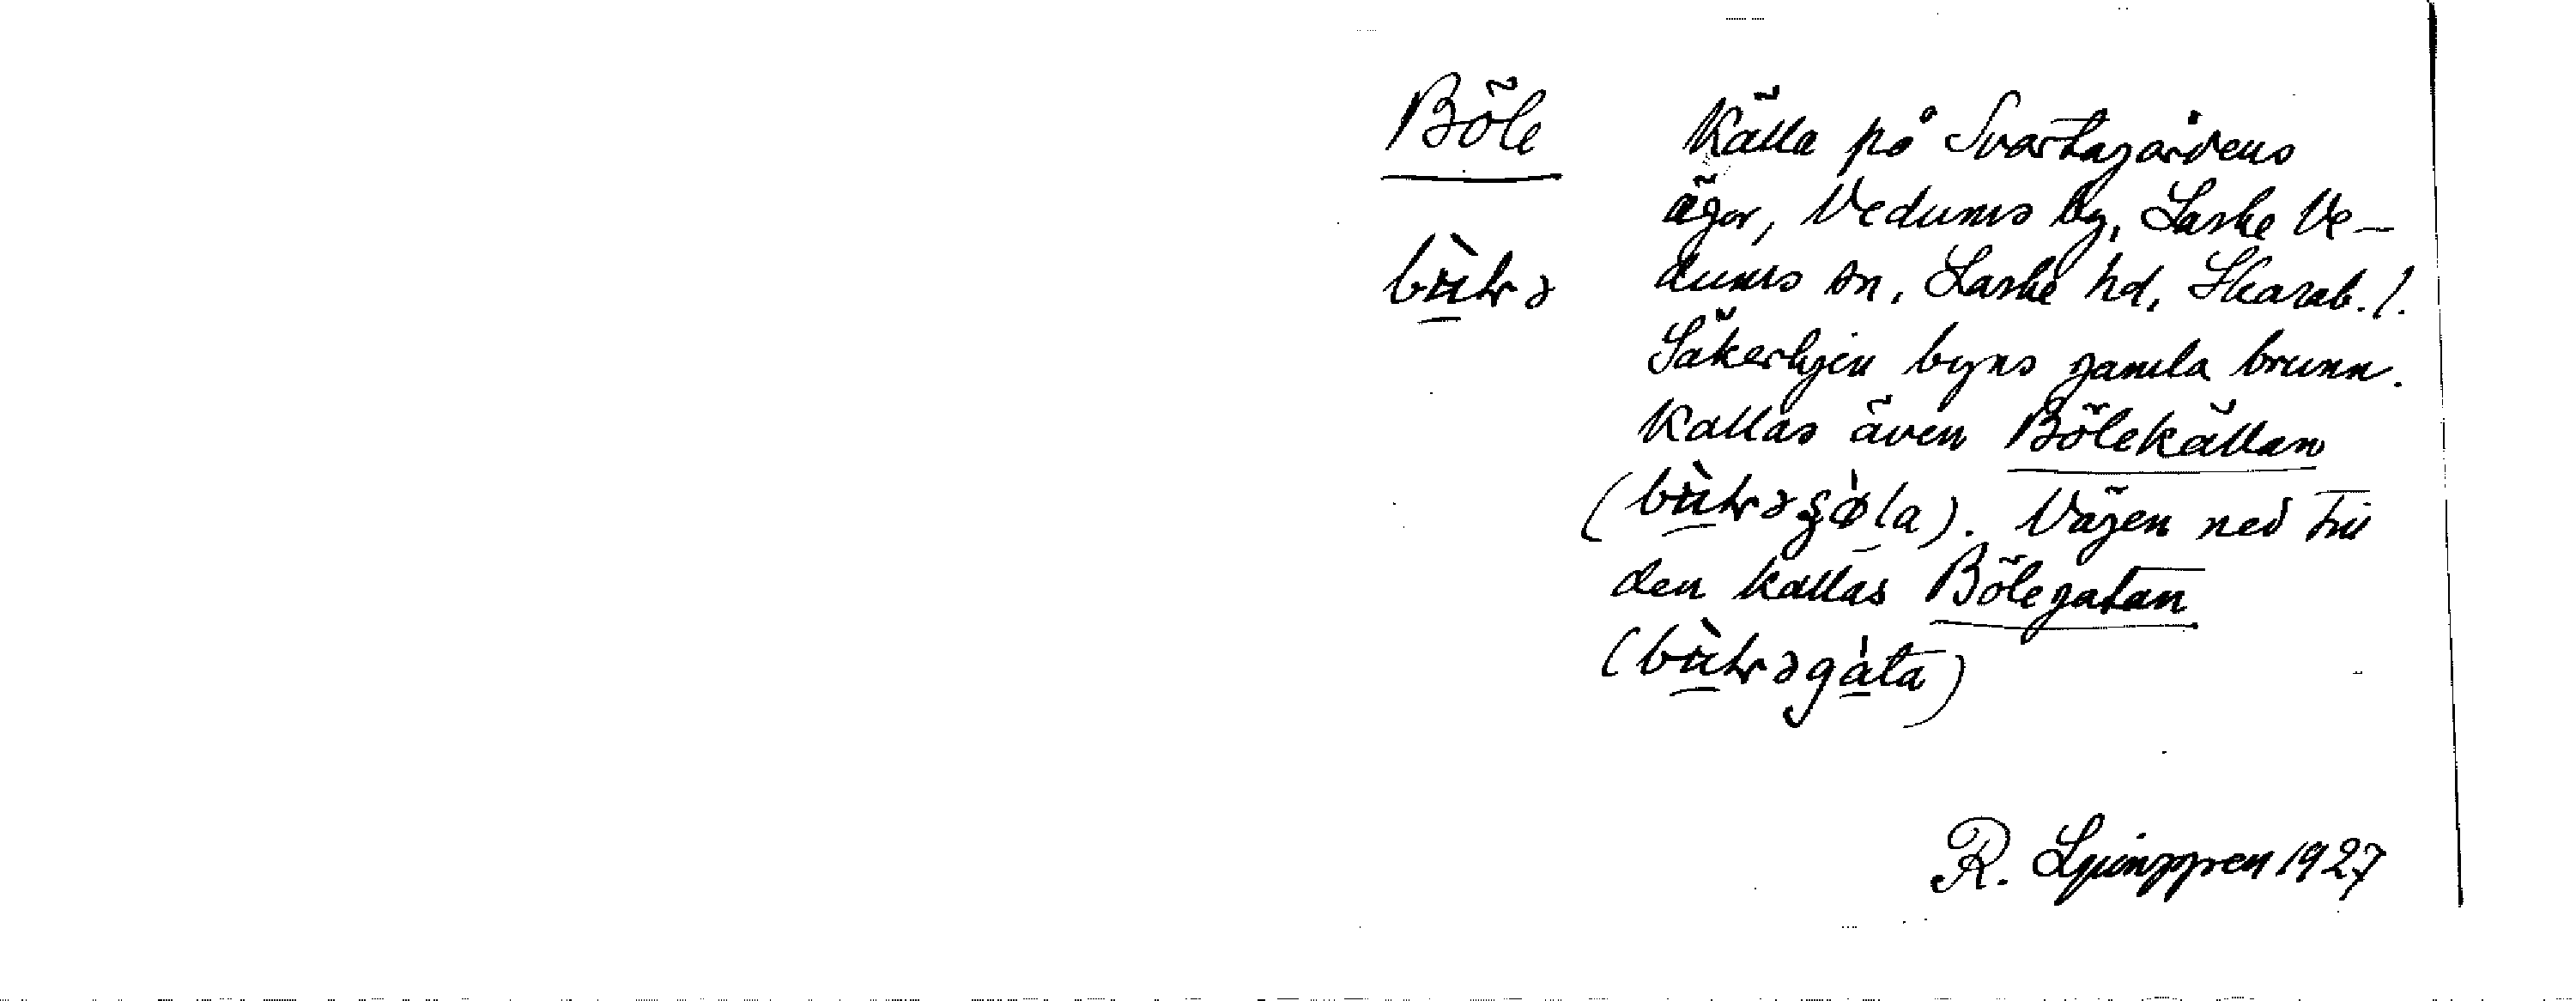 Böle
Källa på Svartagårdens
ägor, Vedums by, Laske Ve-
dums sn, Laske hd, Skarab. l.
Säkerligen byns gamla brunn.
Kallas även Bölekällan
Vägen ned till
den kallas Bölegatan
R. Ljunggren 1927